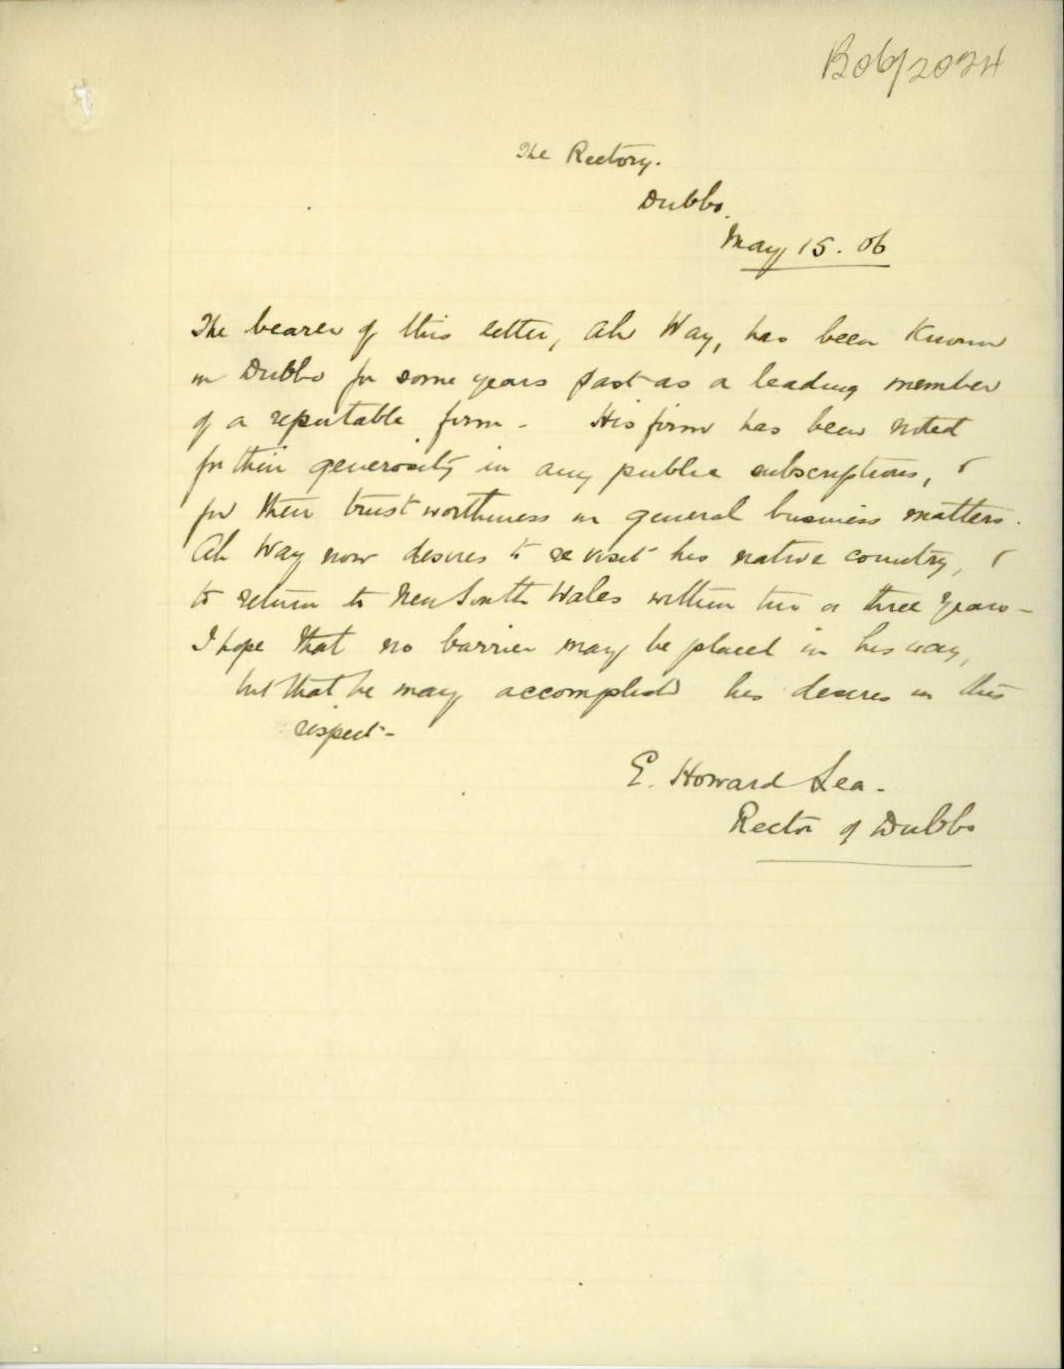 B06/2024
The Rectory.
Dubbo.
May 15. 06
The bearer of this letter, Ah Way, has been known
in Dubbo for some years past as a leading member
of a reputable firm - His firm has been noted
for their generosity in any public subscriptions, &
for their trustworthiness in general business matters.
Ah Way now desires to revisit his native country, &
to return to New South Wales within two or three years -
I hope that no barrier may be placed in his way,
but that he may accomplish his desires in this
respect -
E. Howard Lea.
Rector of Dubbo